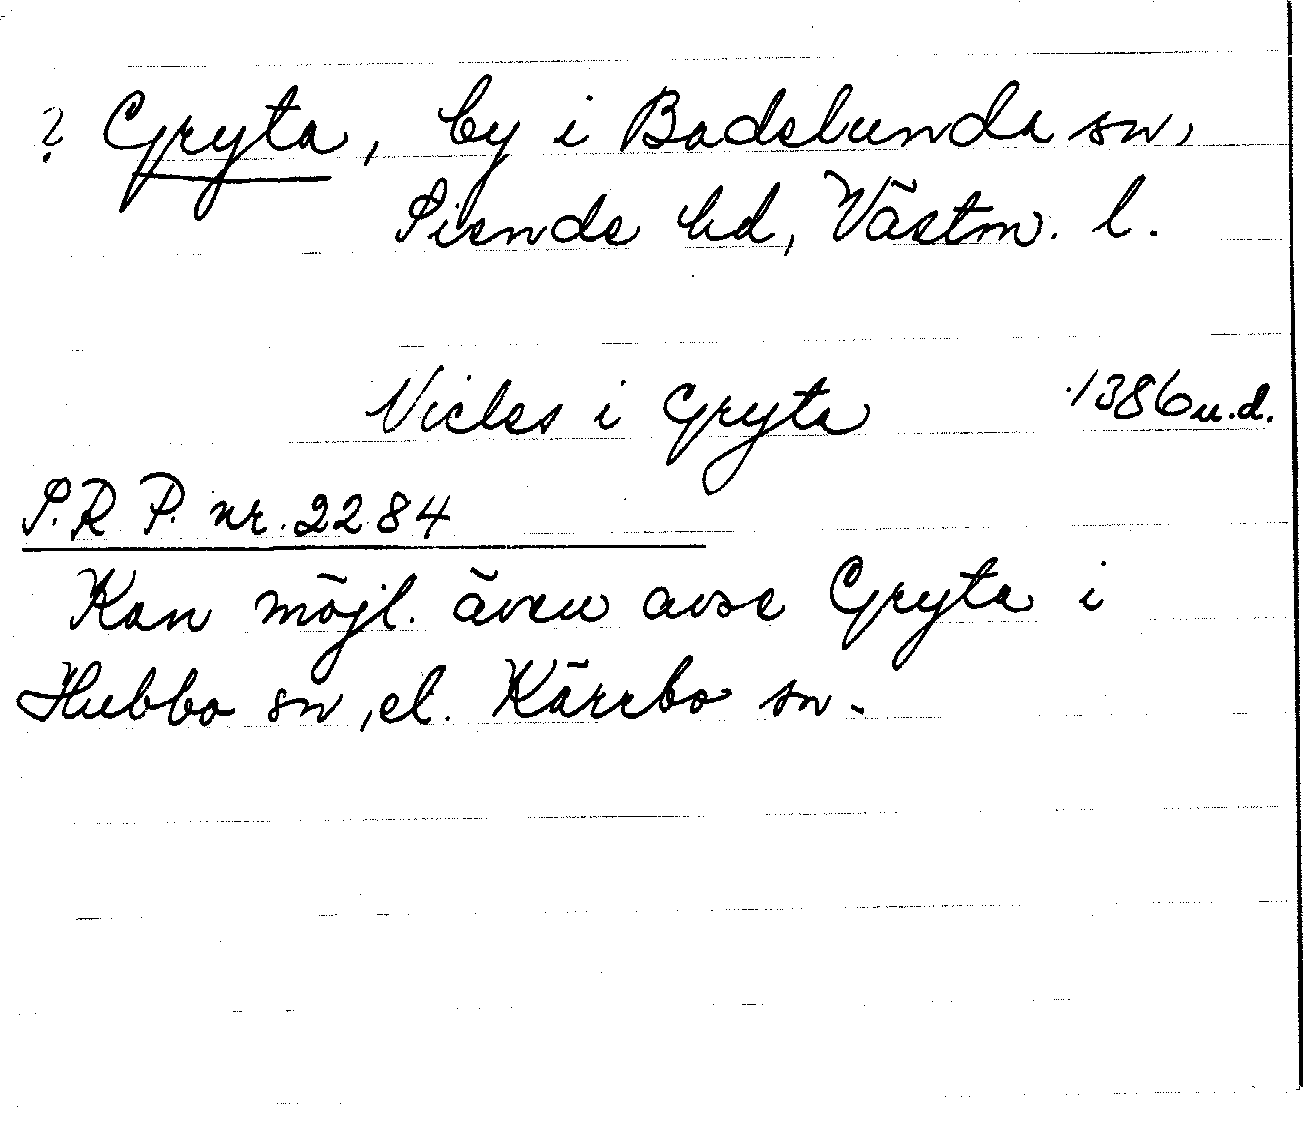 ? Gryta, by i Badelunda sn,
Siende hd, Västm. l.
Nicles i Gryta 1386 u.d.
S.R.P. nr. 2284
Kan möjl. även avse Gryta i
Hubbo sn, el. Kärrbo sn.